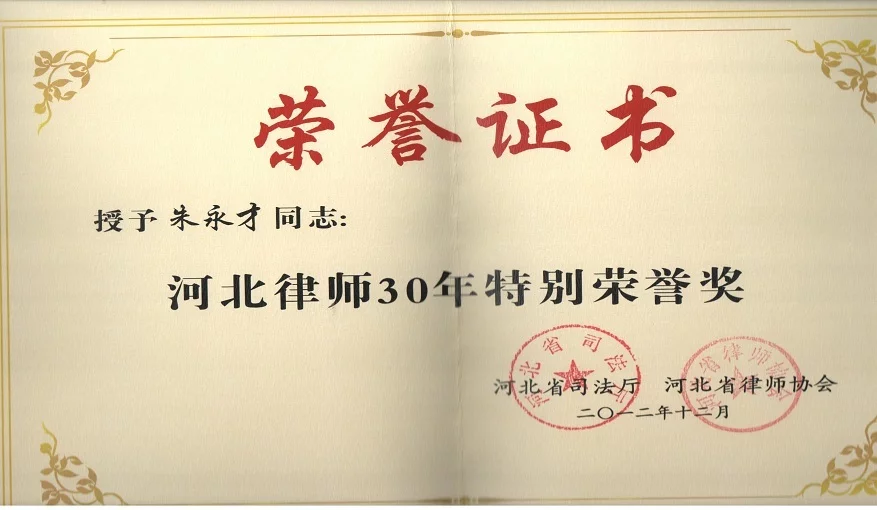 荣誉证书
授予朱永才同志:
河北律师30年特别荣誉奖
河北省司法厅 河北省律师协会
二〇一二年十二月
河北省司法厅
河北省律师协会